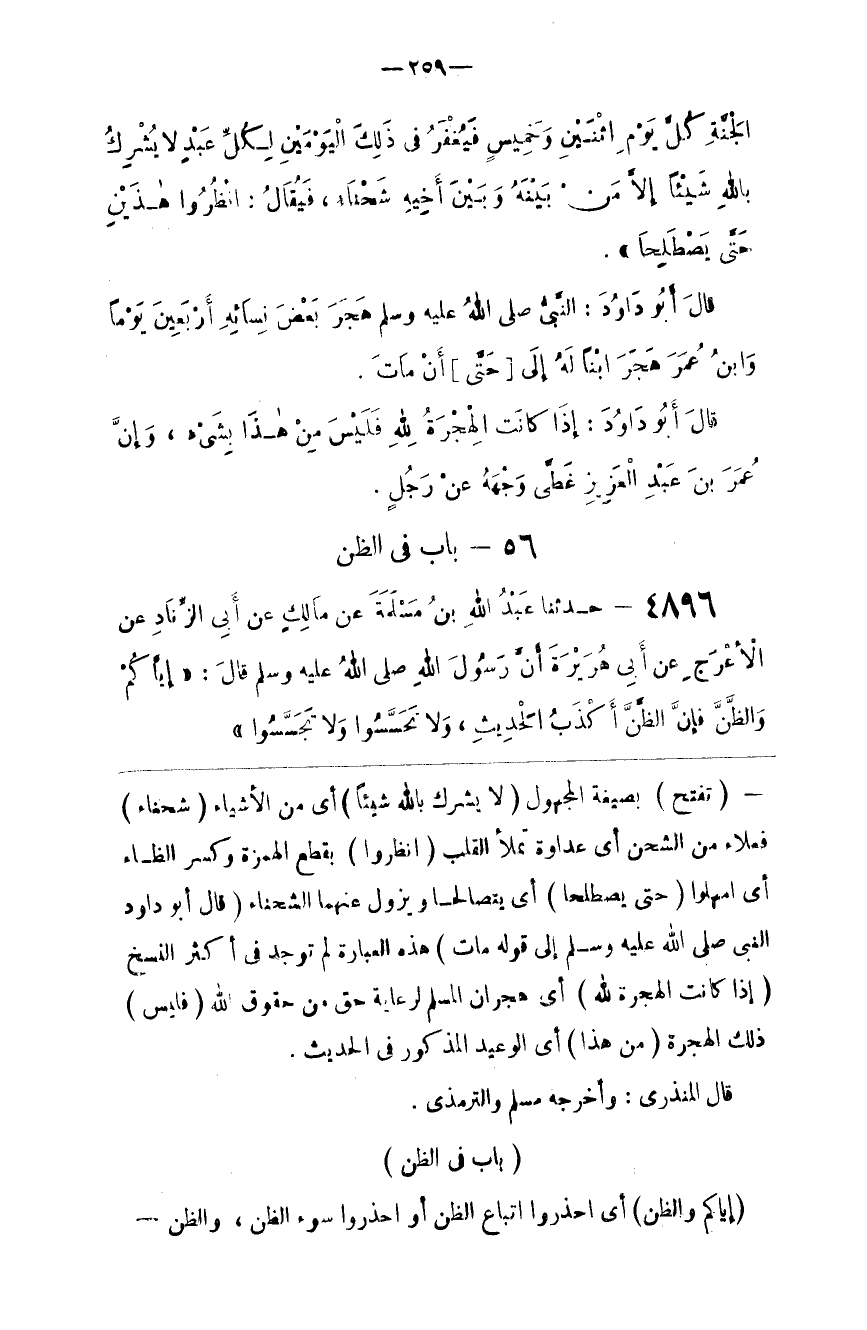 — ٢٥٩ —
الْجَنَّةِ كُلَّ يَوْمِ اثْنَيْنِ وَخَمِيسٍ فَيُغْفَرُ فى ذَلِكَ الْيَوْمَيْنِ لِكُلِّ عَبْدٍ لا يُشْرِكُ
باللهِ شَيْئاً إلاَّ مَنْ بَيْنَهُ وَبَيْنَ أَخِيهِ شَحْنَاءُ ، فَيُقَالُ : انْظُرُوا هٰذَيْنِ
حَتَّى يَصْطَلِحاَ » .
قالَ أَبُو دَاوُدَ : النَّبىُّ صلى اللهُ عليه وسلم هَجَرَ بَعْضَ نِسَائِهِ أَرْبَعِينَ يَوْماً
وَابنُ عُمَرَ هَجَرَ ابْناً لَهُ إلَى [ حَتَّى ] أَنْ مَاتَ .
قالَ أَبُو دَاوُدَ : إذَا كاَنَت الْهِجْرَةُ لِلهِ فَلَيْسَ مِنْ هٰذَا بِشَىْءٍ ، وَإنَّ
عُمَرَ بنَ عَبْدِ الْعَزِيزِ غَطَّى وَجْهَهُ عنْ رَجُلٍ .
٥٦ — باب فى الظن
٤٨٩٦ — حدثنا عَبْدُ اللهِ بنُ مَسْلَمَةَ عن مَالِكٍ عن أَبى الزِّنَادِ عن
الْأَعْرَجِ عن أَبى هُرَيْرَةَ أَنَّ رَسُولَ اللهِ صلى اللهُ عليه وسلم قالَ : « إيَّاكُمْ
وَالظَّنَّ فإنَّ الظَّنَّ أَكْذَبُ الْحَدِيثِ ، وَلا تَحَسَّسُوا وَلا تَجَسَّسُوا »
— ( تفتح ) بصيغة المجهول ( لا يشرك بالله شيئاً ) أى من الأشياء ( شحناء )
فعلاء من الشحن أى عداوة تملأ القلب ( انظروا ) بقطع الهمزة وكسر الظاء
أى امهلوا ( حتى يصطلحا ) أى يتصالحا ويزول عنهما الشحناء ( قال أبو داود
النبى صلى الله عليه وسلم إلى قوله مات ) هذه العبارة لم توجد فى أكثر النسخ
( إذا كانت الهجرة لله ) أى هجران المسلم لرعاية حق من حقوق الله ( فليس )
ذلك الهجرة ( من هذا ) أى الوعيد المذكور فى الحديث .
قال المنذرى : وأخرجه مسلم والترمذى .
( باب فى الظن )
(إياكم والظن) أى احذروا اتباع الظن أو احذروا سوء الظن ، والظن —